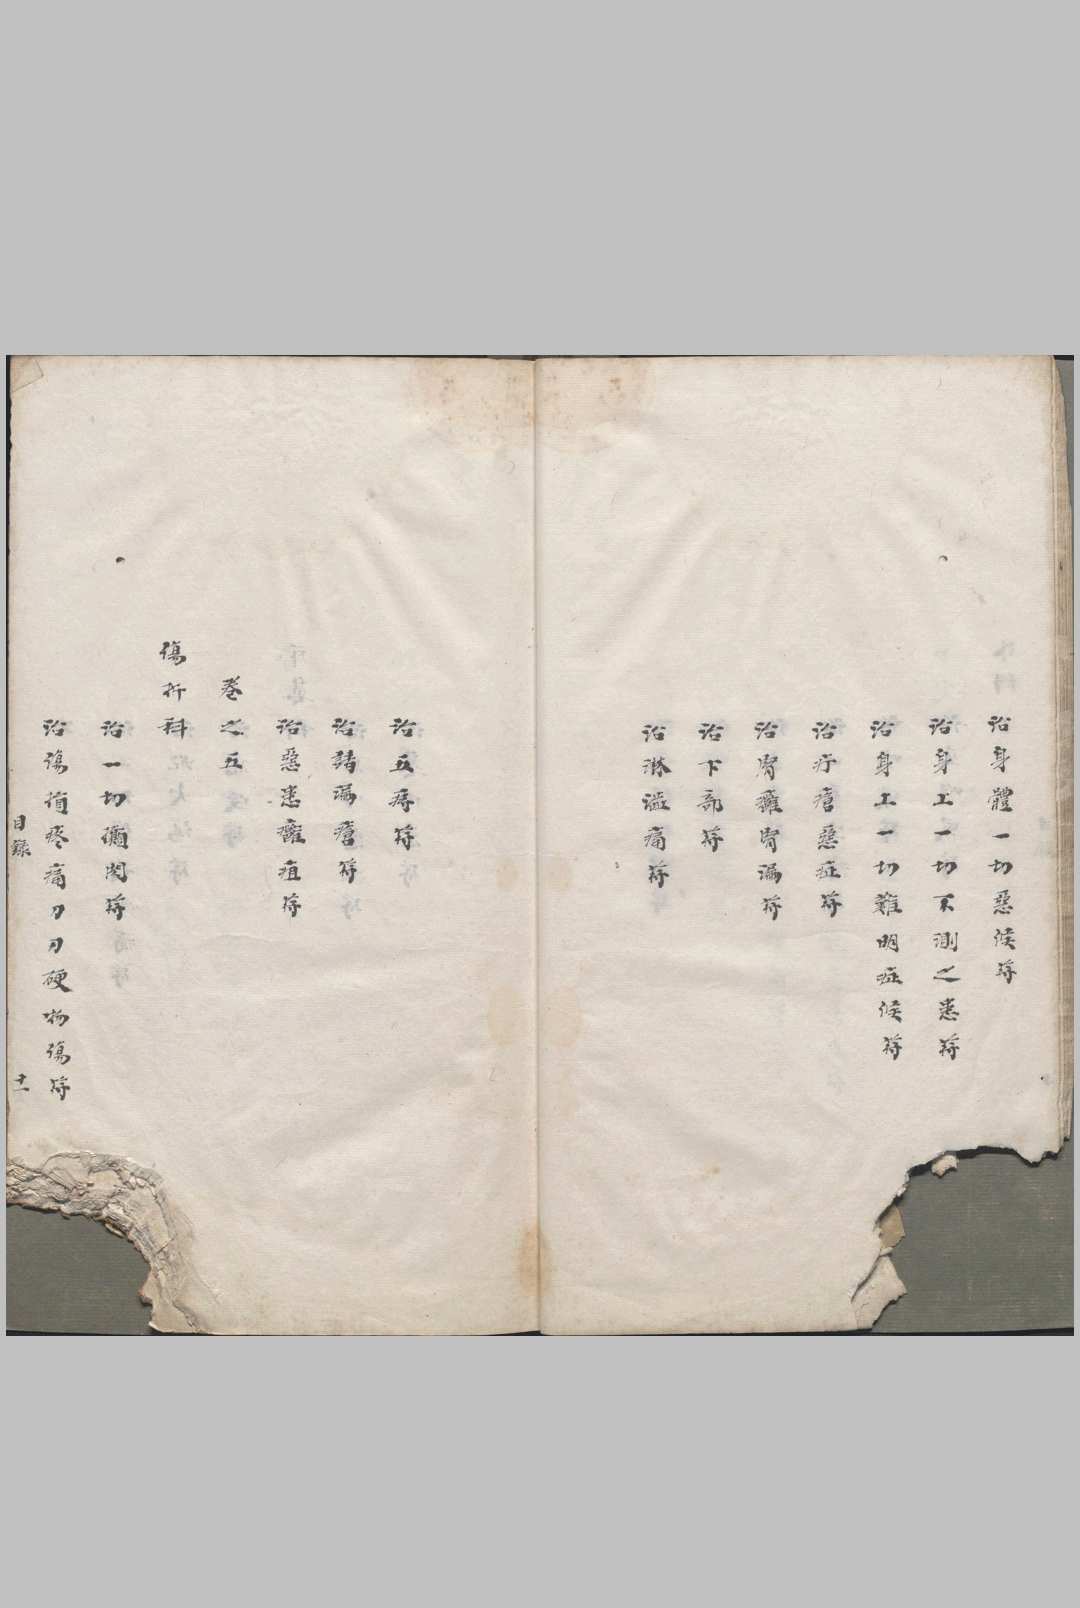 治身體一切惡候符
治身上一切不測之患符
治身上一切難明症候符
治疔瘡惡症符
治胃癰胃漏符
治下部符
治淋澁痛符
治五痔符
治諸漏瘡符
治惡患癰疽符
卷之五
傷折科
治一切獼悶符
治傷損疼痛刀刃硬物傷符
目錄
十一